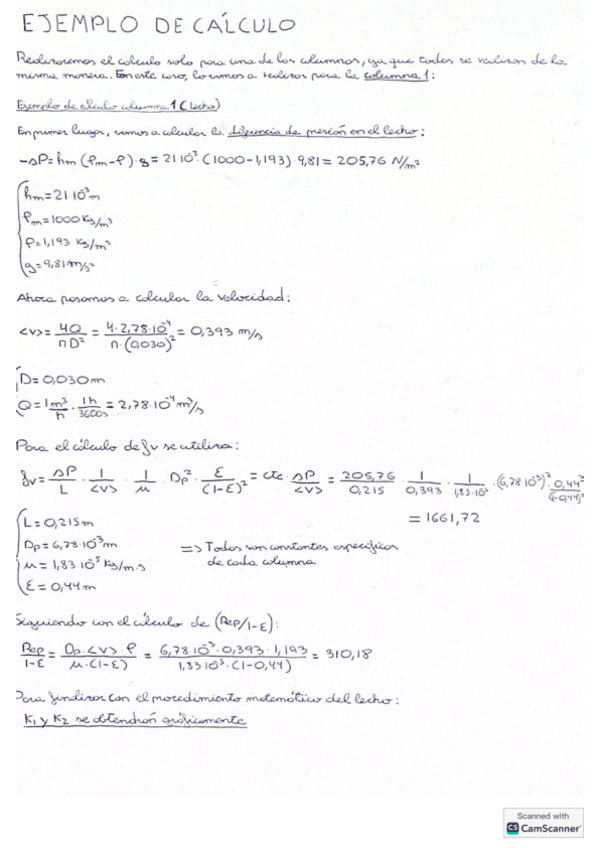 EJEMPLO DE CÁLCULO
Realizaremos el calculo solo para una de las columnas, ya que todos se realizan de la
misma manera. En este caso, lo vamos a realizar para la columna 1:
Ejemplo de cálculo columna 1 (lecho)
En primer lugar, vamos a calcular la diferencia de presión en el lecho:
-ΔP = hm (ρm-ρ)·g = 21·10³·(1000-1,193)·9,81 = 205,76 N/m²
hm = 21·10³m
ρm = 1000 Kg/m³
ρ = 1,193 Kg/m³
g = 9,81 m/s²
Ahora pasamos a calcular la velocidad:
<v> = 4Q/πD² = 4·2,78·10⁻⁴/π·(0,030)² = 0,393 m/s
D = 0,030 m
Q = 1 m³/h · 1h/3600s = 2,78·10⁻⁴ m³/s
Para el cálculo de fv se utiliza:
fv = ΔP/L · 1/<v> · 1/μ · Dp² · ε/(1-ε)² = cte · ΔP/<v> = 205,76/0,215 · 1/0,393 · 1/1,83·10⁵ · (6,78·10³)² · 0,44/(1-0,44)²
= 1661,72
L = 0,215 m
Dp = 6,78·10³ m
μ = 1,83·10⁵ kg/m·s
ε = 0,44 m
=> Todos son constantes específicas
de cada columna
Siguiendo con el cálculo de (Rep/1-ε):
Rep/1-ε = Dp·<v>·ρ/μ·(1-ε) = 6,78·10³·0,393·1,193/1,83·10⁵·(1-0,44) = 310,18
Para finalizar con el procedimiento matemático del lecho:
K₁ y K₂ se obtendrán gráficamente
Scanned with
CS CamScanner